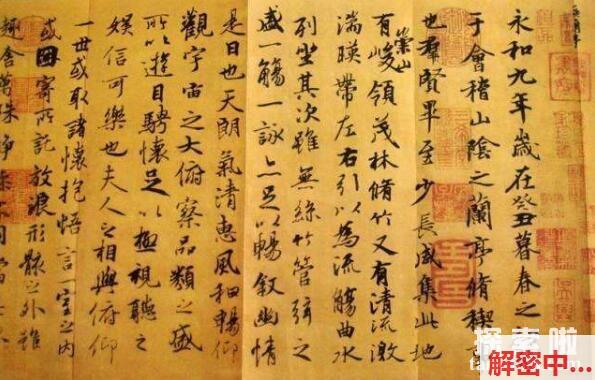 永和九年歲在癸丑暮春之
于會稽山陰之蘭亭脩禊事
也羣賢畢至少長咸集此地
有崇山峻領茂林脩竹又有清流激
湍暎帶左右引以為流觴曲水
列坐其次雖無絲竹管弦之
盛一觴一詠亦足以暢叙幽情
是日也天朗氣清惠風和暢仰
觀宇宙之大俯察品類之盛
所以遊目騁懷足以極視聽之
娛信可樂也夫人之相與俯仰
一世或取諸懷抱悟言一室之内
或因寄所託放浪形骸之外雖
趣舍萬殊静躁不同當
探索啦
解密中...